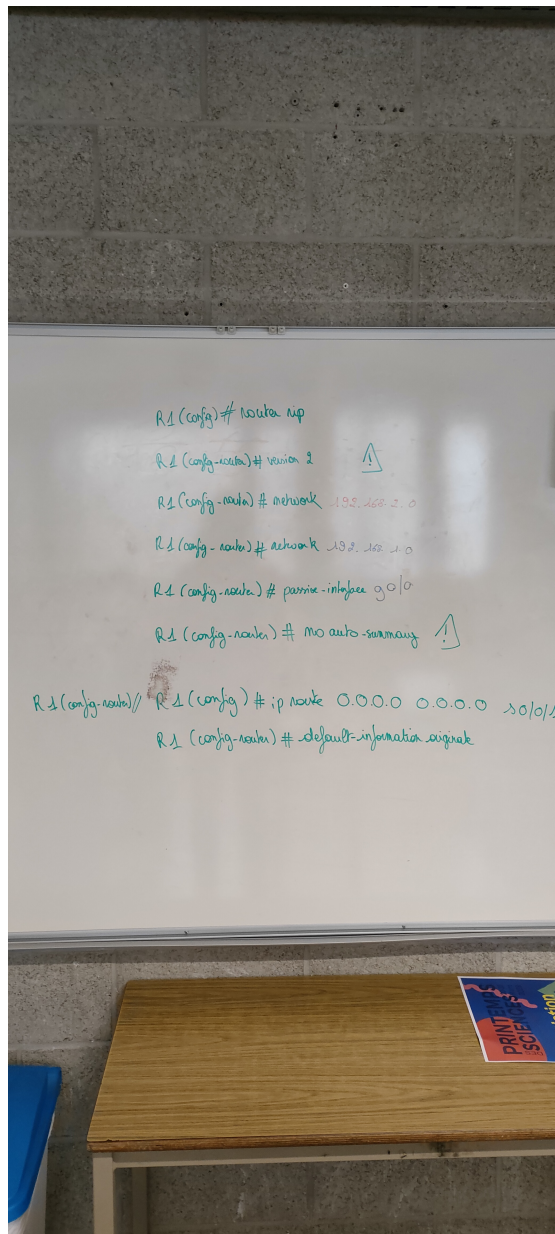 R1(config)# router rip
R1(config-router)# version 2 !
R1(config-router)# network 192.168.2.0
R1(config-router)# network 192.168.1.0
R1(config-router)# passive-interface g0/0
R1(config-router)# no auto-summary !
R1(config-router)// R1(config)# ip route 0.0.0.0 0.0.0.0 s0/0/1
R1(config-router)# default-information originate
PRINTEMPS
SCIENCES